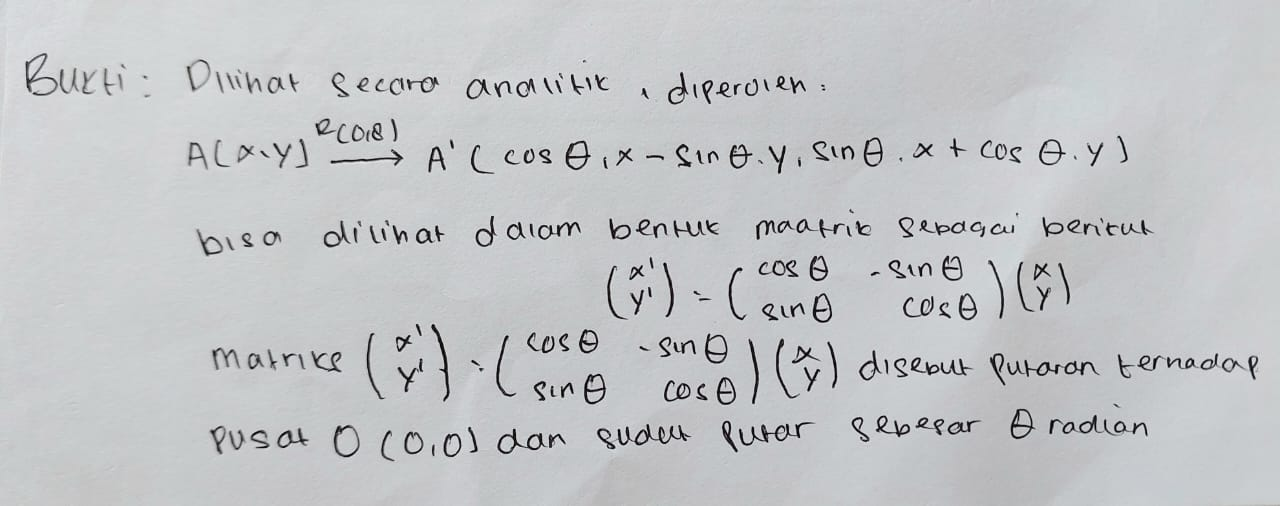 Bukti : Dilihat secara analitik , diperoleh :
A(x,y) R(0,θ) → A' ( cos θ . x - sin θ . y , sin θ . x + cos θ . y )
bisa dilihat dalam bentuk maatrik sebagai berikut
(x' y') = (cos θ -sin θ sin θ cos θ) (x y)
matriks (x' y') = (cos θ -sin θ sin θ cos θ) (x y) disebut putaran terhadap
pusat O (0,0) dan sudut putar sebesar θ radian